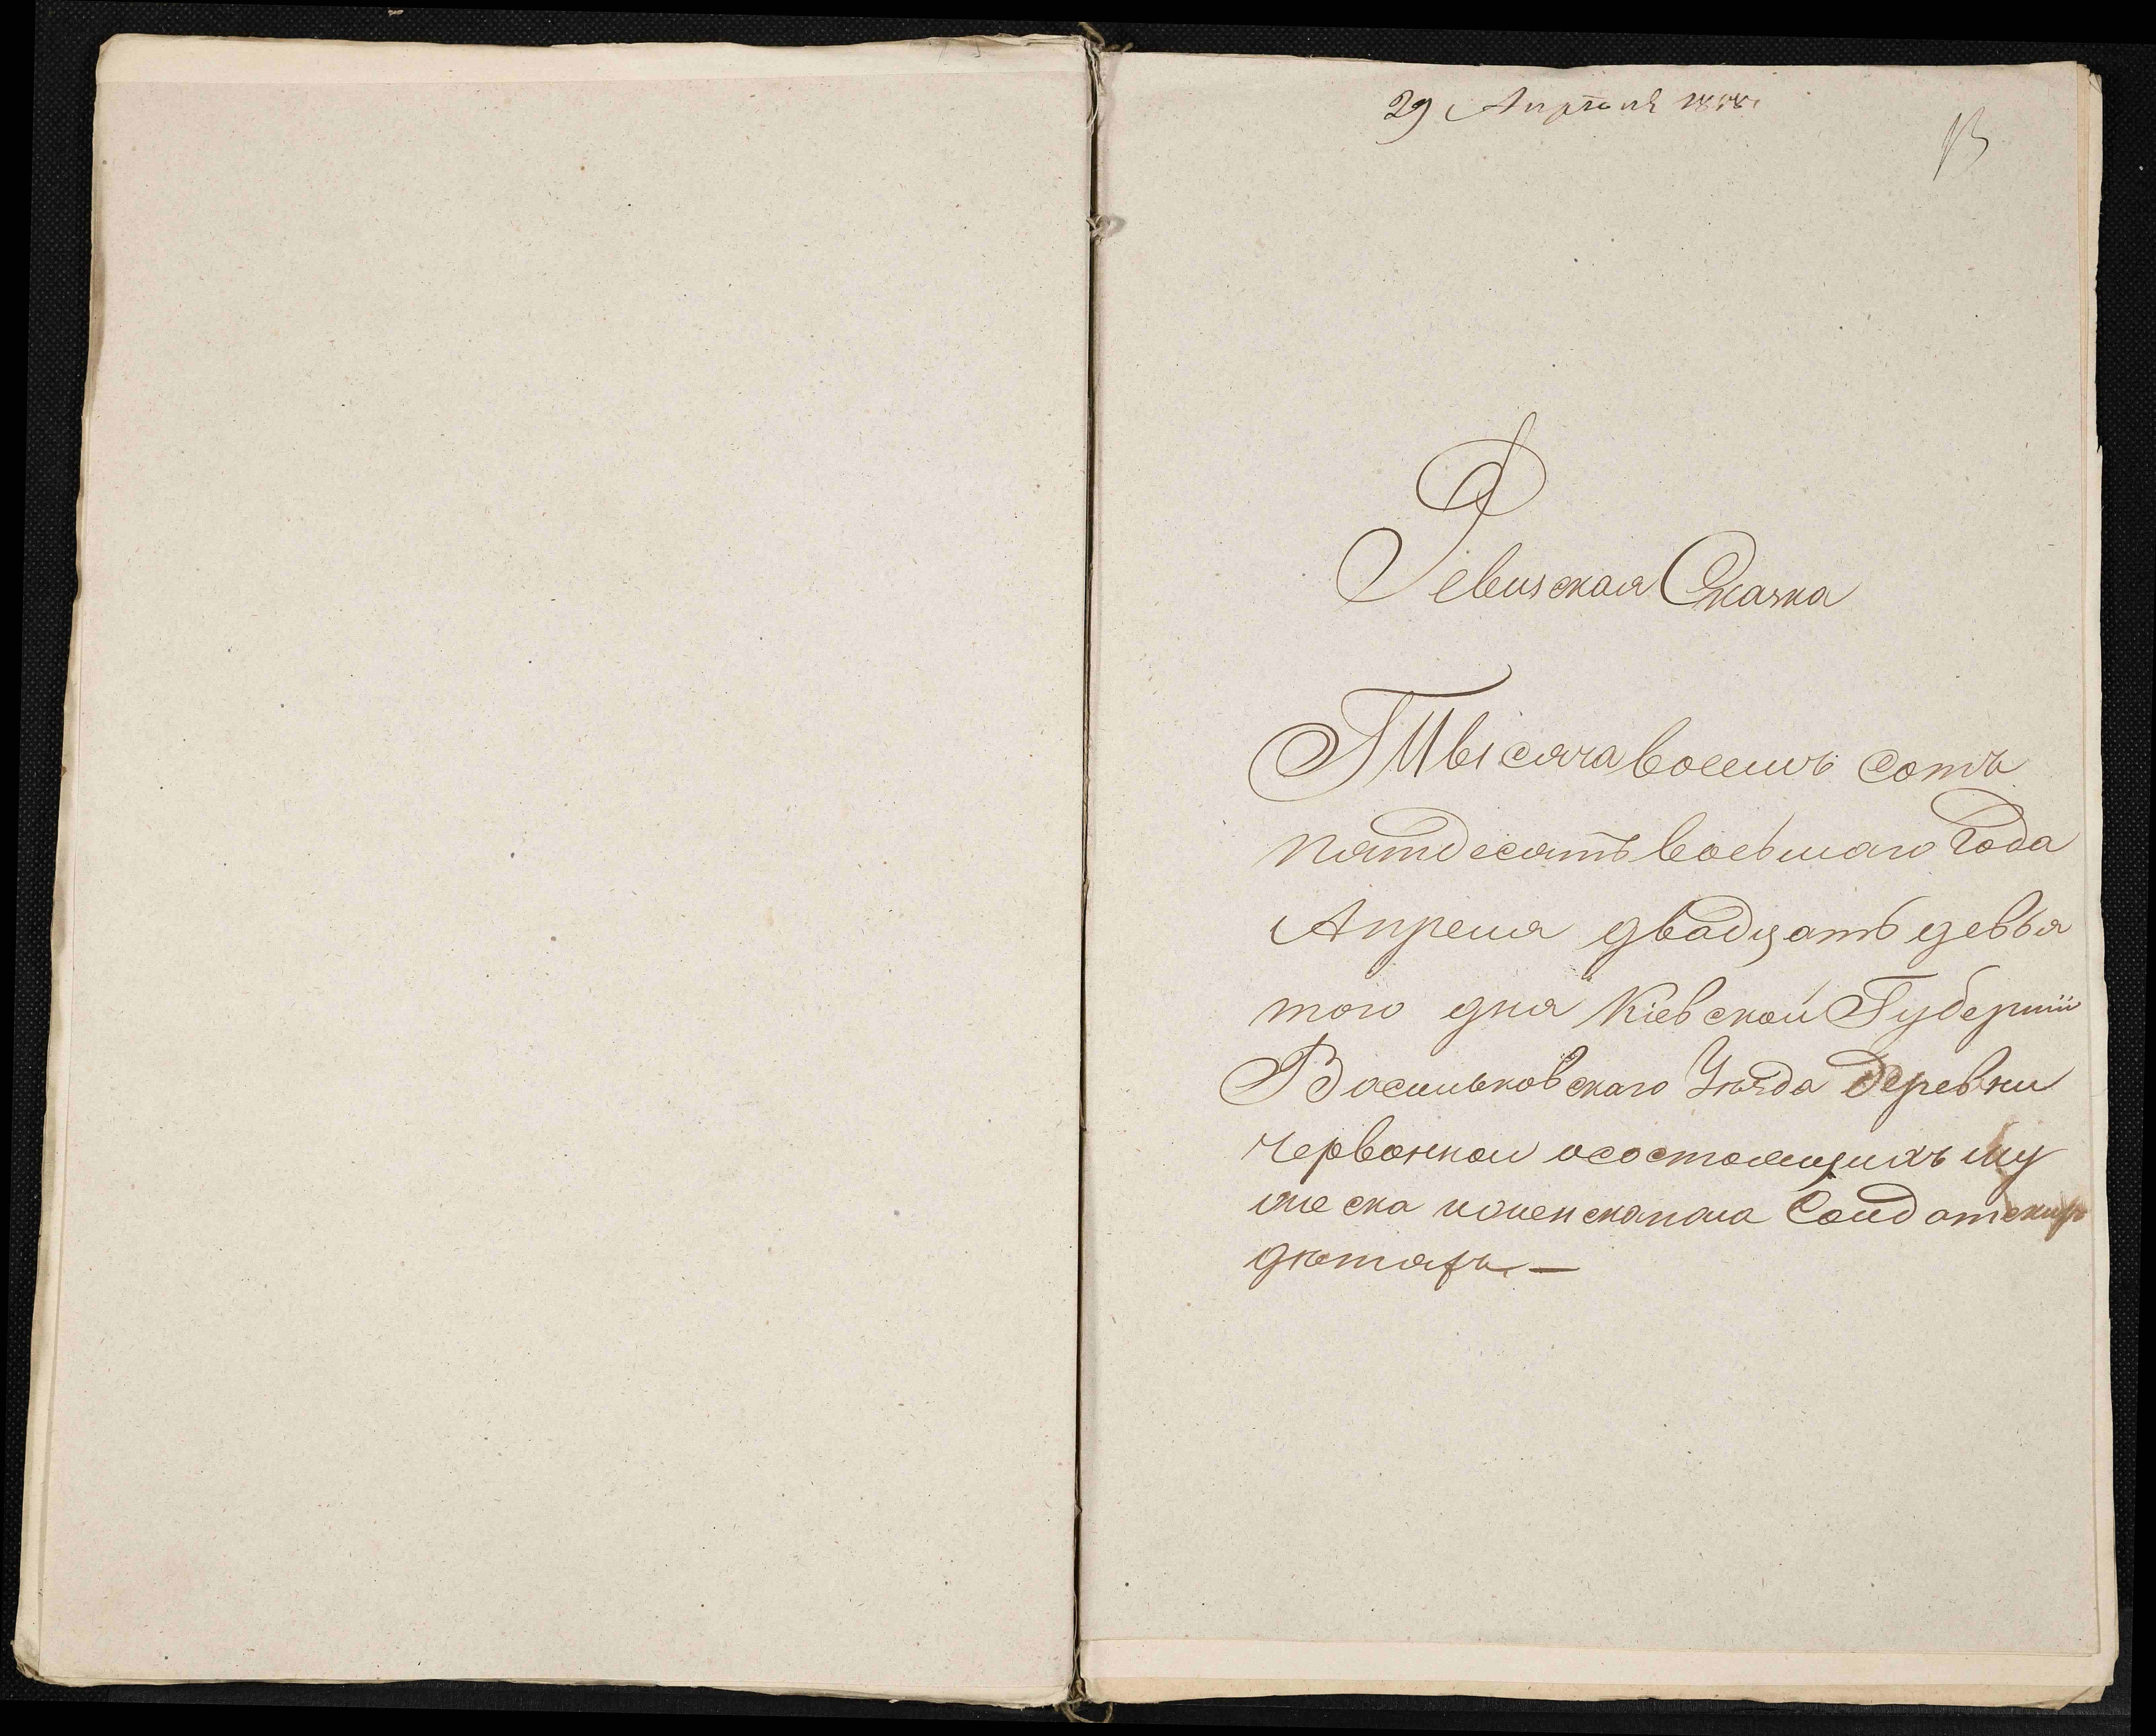 29 Апрѣля 1858
13
Ревизская Сказка
Тысяча восемь сотъ
пятдесятъ восьмаго Года
Апреля двадцать девья
того дня Кіевской Губерніи
Васильковскаго Уѣзда Деревни
Червонной о состоящихъ му
жеска и женска пола Солдатскихъ
дѣтяхъ. —